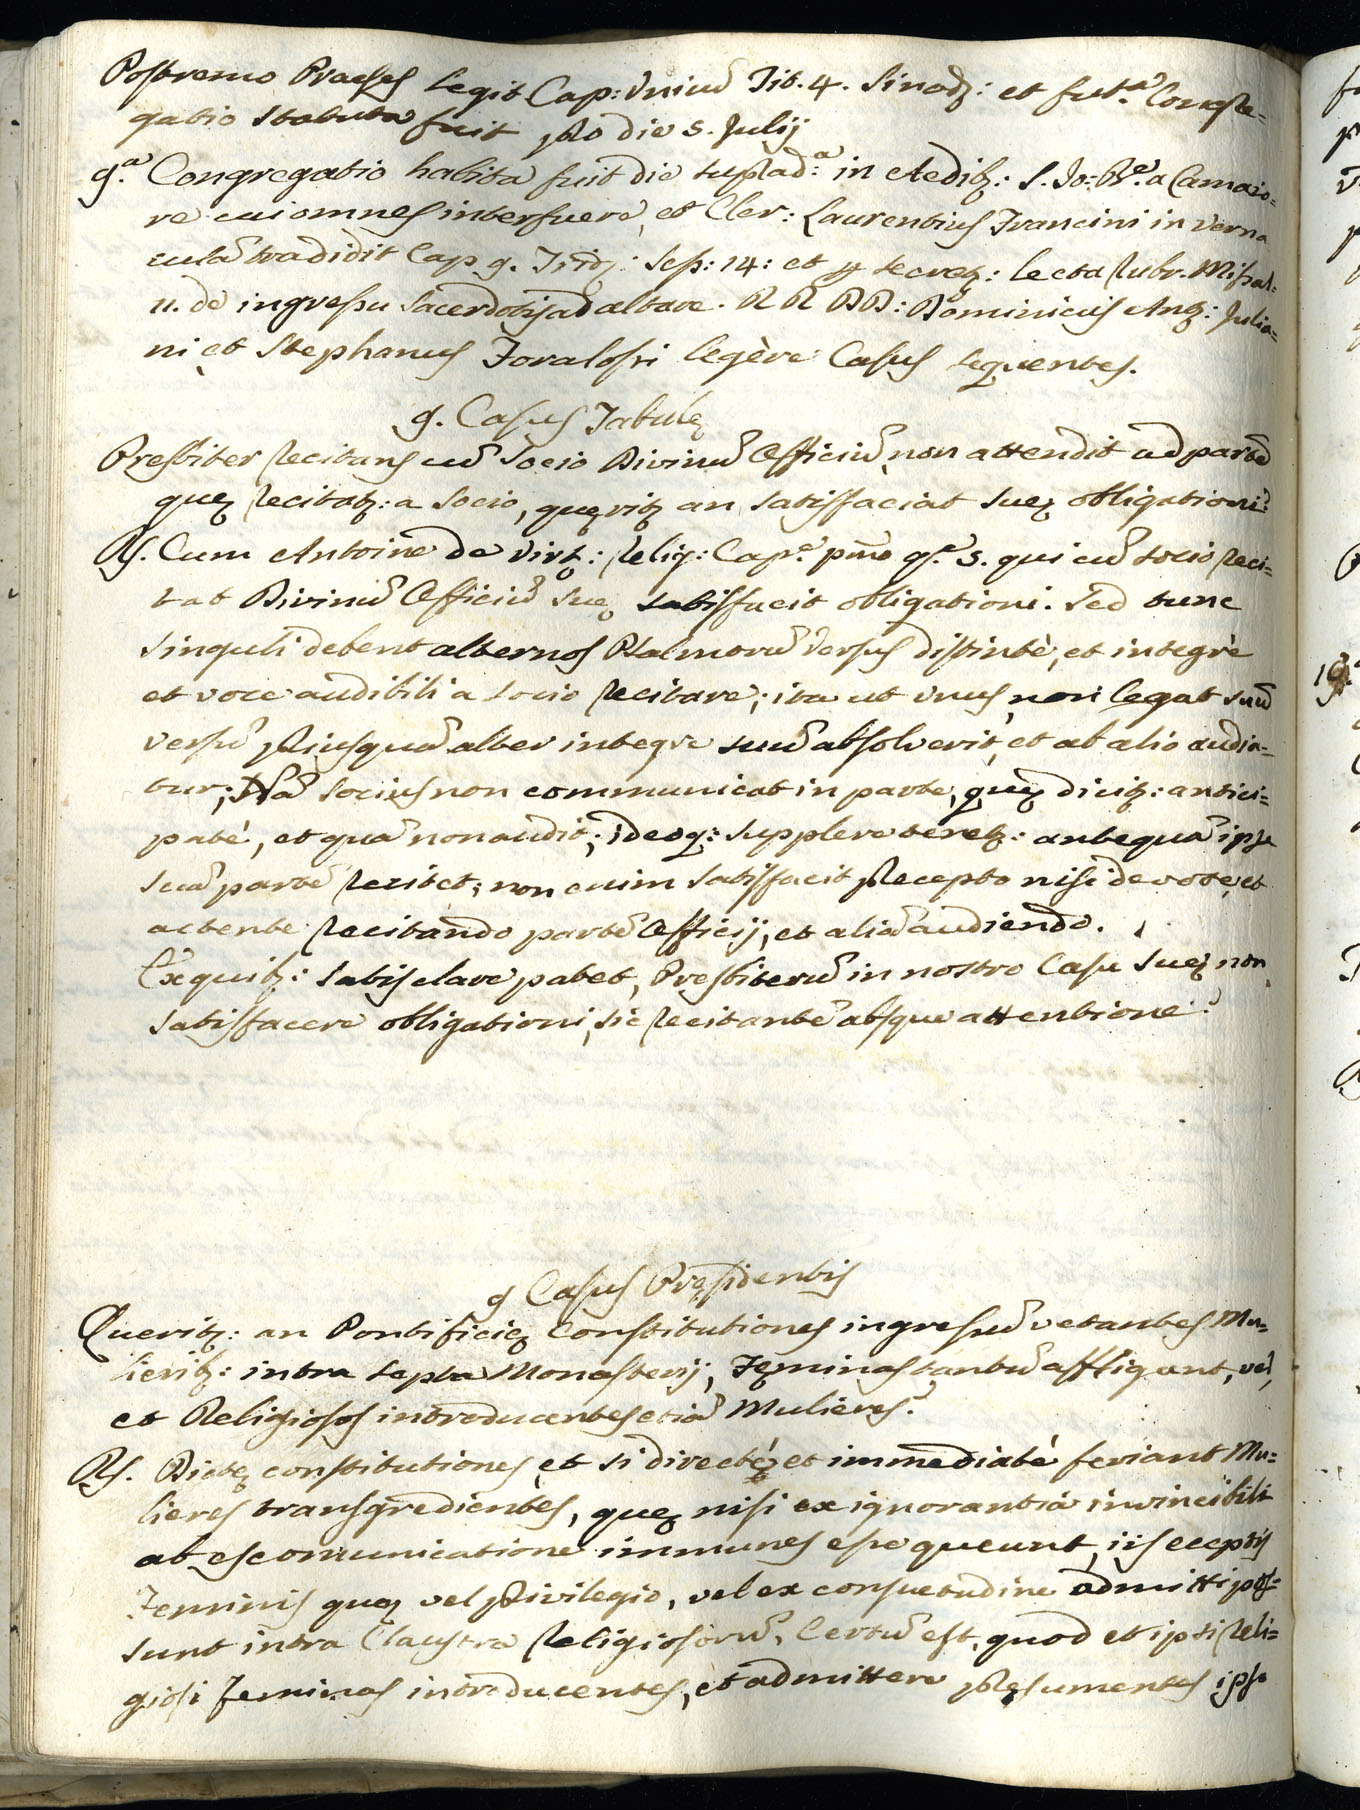 Postremo Praeses legit Cap: Unicũ Tit. 4. Sinodj: et fut.ª Congre-
gatio statuta fuit pro die 5. Julij
9.ª Congregatio habita fuit die suprad.ª in Aedibz: S. Jo: Bª. a Camaio-
re cui omnes interfuere, et Cler: Laurentius Francini in verna
culã tradidit Cap 9. Trid: Seſs: 14: et secretz: lecta rubr. Miſsal:
11. de ingreſsu Sacerdotis ad altare. RR DD: Dominicus Antz: Julia-
ni et Stephanus Foraloſsi legère Casus sequentes.
9. Casus Tabulę
Presbiter recitans cũ Socio Divinũ Officiũ, non attendit ad partẽ
quę recitatz: a socio, quęritz an satisfaciat suę obligationi?
Rs. Cum Antoine de Virtz: Relig: Cap.º pmo qª. 3. qui cũ socio reci-
tat Divinũ Officiũ suę satisfacit obligationi. Sed tunc
singuli debent alternos Psalmorũ versus distintè, et integrè
et voce audibili a socio recitare; ita ut unus non legat suũ
versũ priusquã alter integre suũ absolverit, et ab alio audia-
tur; Nã socius non communicat in parte, quę dicitz: antici-
patè, et quã non audit; ideoq: supplere teretz: antequã ipse
suã partẽ recitet; non enim satisfacit precepto nisi devote, et
actente recitando partẽ Officij, et aliã audiendo.
Ex quibz: satis clare patet, Presbiterũ in nostro Casu suę non
satisfacere obligationi, sic recitantẽ absque attentione.
9 Casus Pręsidentis
Queritz: an Pontificię Constitutiones ingreſsũ vetantes Mu-
lieribz: intra septa Monasterij, Fęminas tantũ affligant, vel
et Religiosos introducentes etiã Mulieres?
Rs. Dictę constitutiones, et si directè, et immediatè feriant Mu-
lieres transgredientes, quę nisi ex ignorantia invincibili
ab escomunicatione immunes eſse queunt, iis eceptis
Feminis quę vel privilegio, vel ex consuetudine admitti pos-
sunt intra Claustra Religiosorũ, Certũ est, quod et ipsi Reli-
giosi Feminas introducentes, et admittere pręsumentes ipso